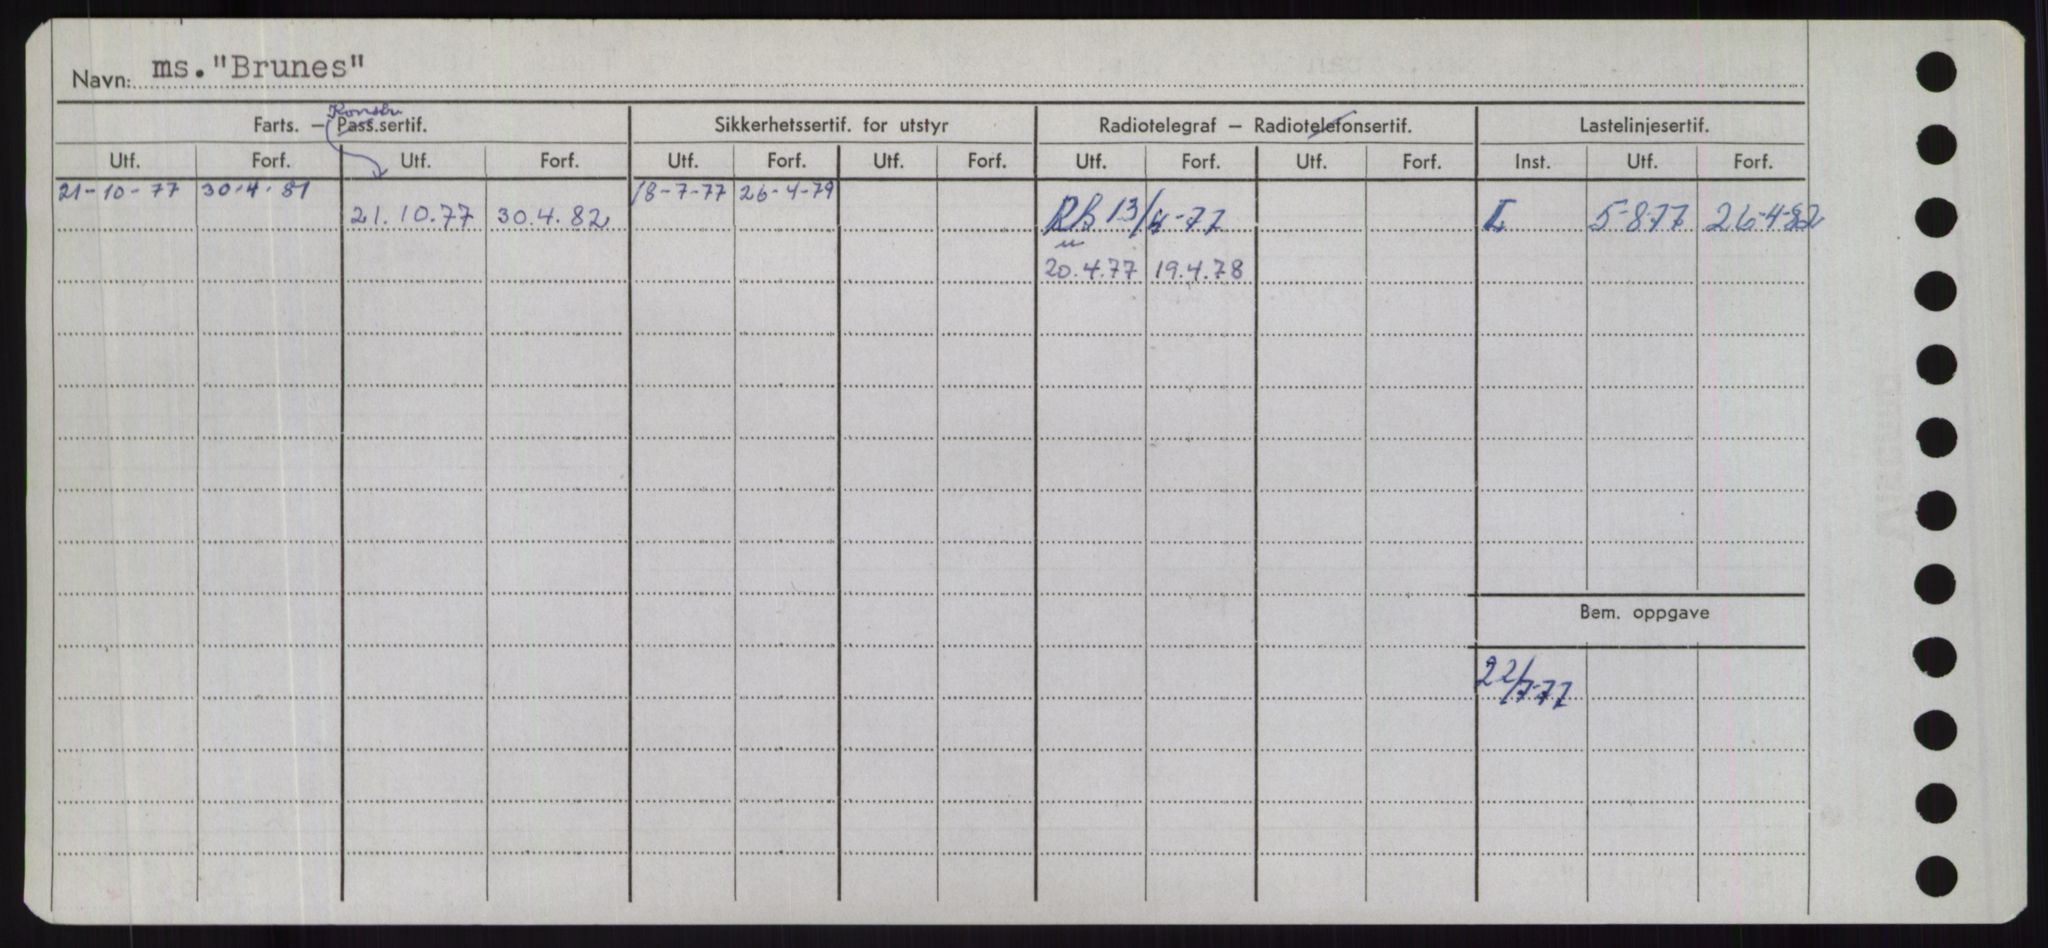 Navn: ms."Brunes"
Konstr.
Farts. — Pass.sertif. Sikkerhetssertif. for utstyr Radiotelegraf — Radiotelefonsertif. Lastelinjesertif.
Utf. Forf. Utf. Forf. Utf. Forf. Utf. Forf. Utf. Forf. Utf. Forf. Inst. Utf. Forf.
21-10-77 30.4.81 18-7-77 26-4-79
21.10.77 30.4.82 RB 13/4-77 I 5-8-77 26-4-82
20.4.77 19.4.78
Bem. oppgave
22/7-77